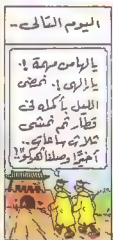 اليوم التالى..
يالها من مهمة !.
يا إلهى !. نمضى
الليل بأكمله فى
قطار ثم نمشى
ثلاث ساعات..
أخيرًا وصلنا هكو !!